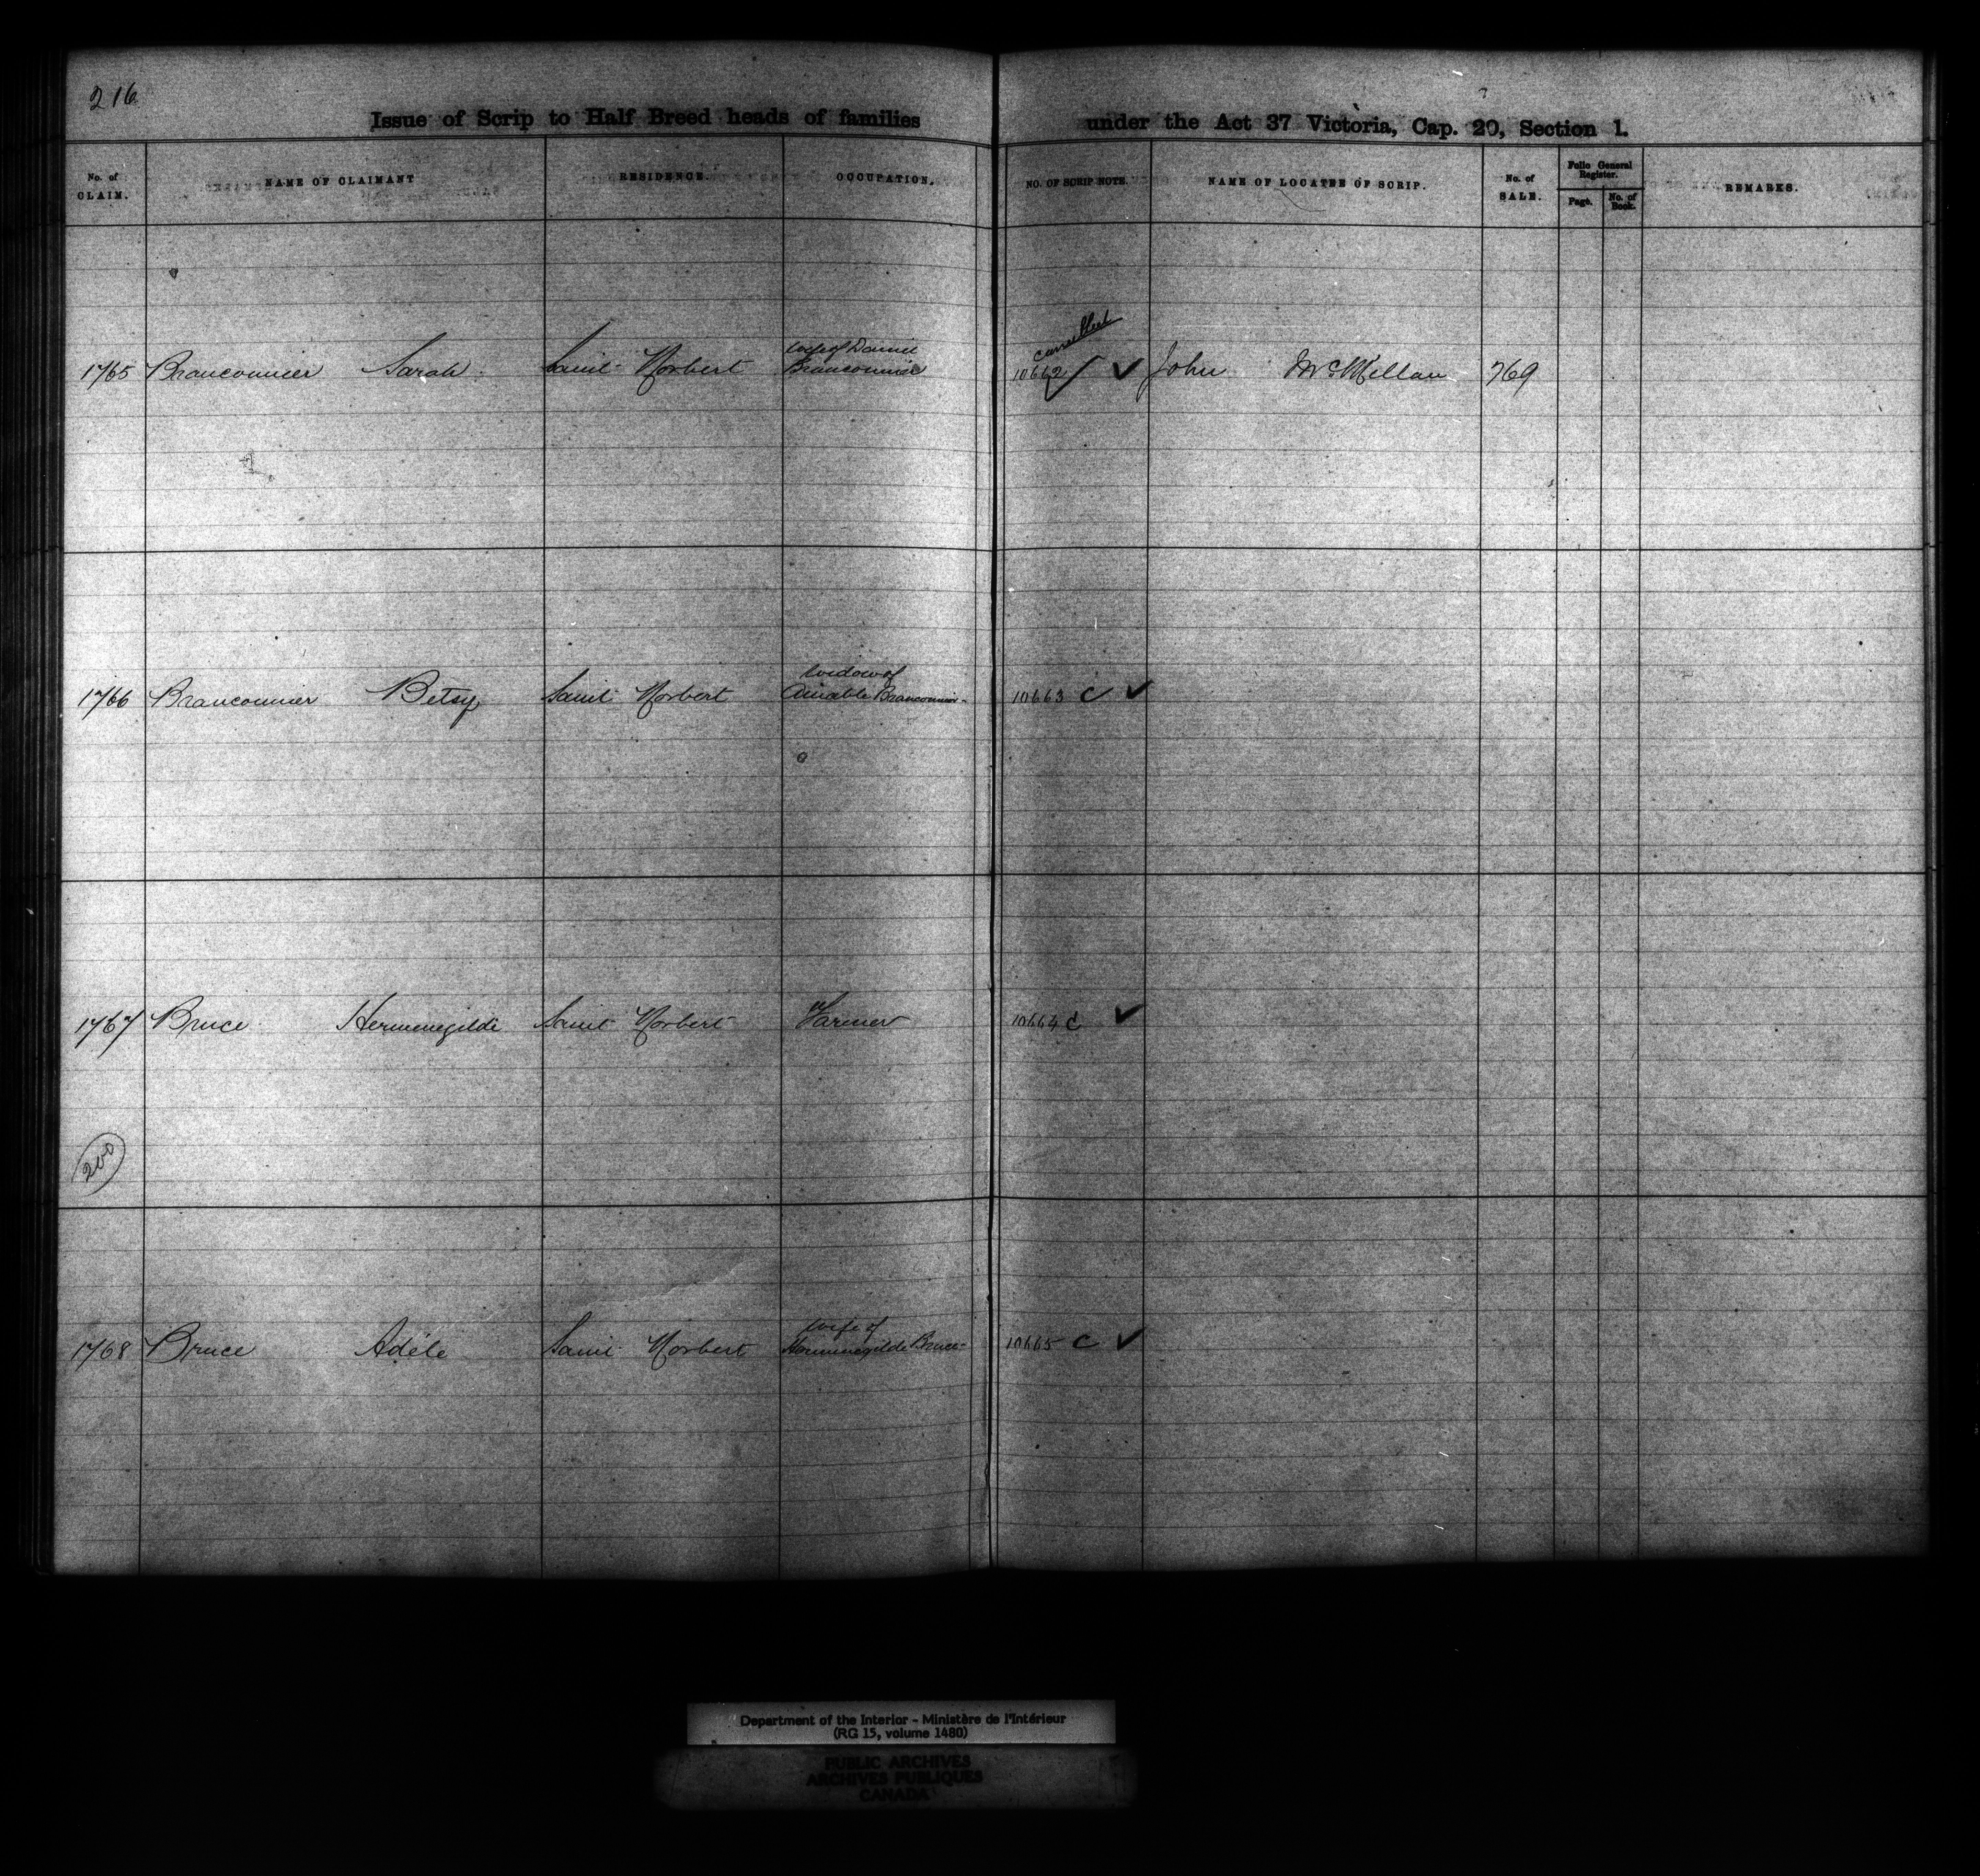 216
Issue of Scrip to Half Breed heads of families under the Act 37 Victoria, Cap. 20, Section 1.
No. of CLAIM. NAME OF CLAIMANT RESIDENCE. OCCUPATION. NO. OF SCRIP NOTE. NAME OF LOCATEE OF SCRIP. No. of SALE. Folio General Register. Page. No. of Book. REMARKS.
wife of Daniel cancelled
1765 Branconnier Sarah Saint Norbert Branconnier 10662 ✓ John McMillan 769
widow of
1766 Branconnier Betsy Saint Norbert Amable Branconnier 10663 C ✓
1767 Bruce Hermenegilde Saint Norbert Farmer 10664 C ✓
200
wife of
1768 Bruce Adéle Saint Norbert Hermenegilde Bruce 10665 C ✓
Department of the Interior - Ministère de l'Intérieur
(RG 15, volume 1480)
PUBLIC ARCHIVES
ARCHIVES PUBLIQUES
CANADA